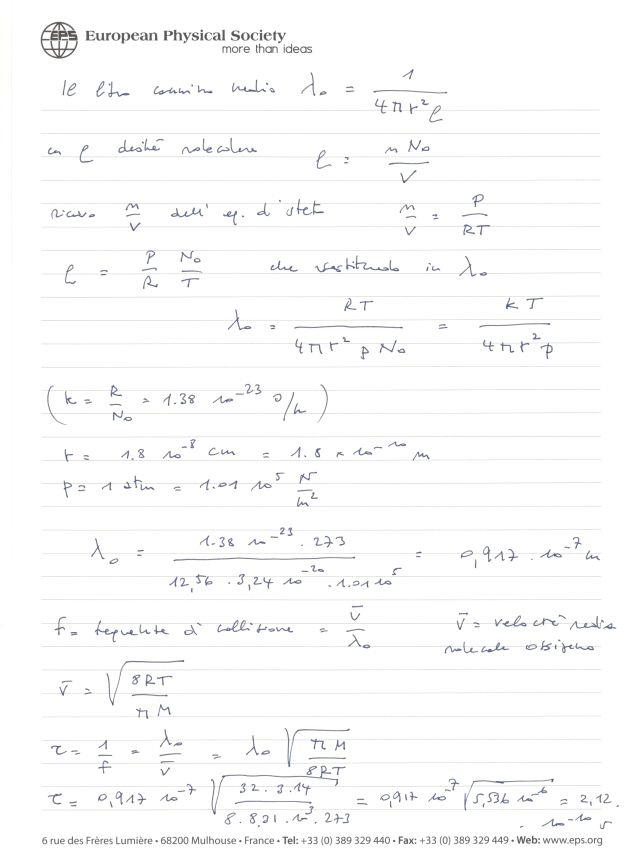 EPS European Physical Society
more than ideas
Il libero cammino medio λ₀ = 1 / (4πr²ρ)
con ρ densità molecolare ρ = n N₀ / V
ricavo n/V dall' eq. di stato n/V = P / RT
ρ = P/R N₀/T che sostituendo in λ₀
λ₀ = RT / (4πr² p N₀) = kT / (4πr² p)
(k = R/N₀ = 1.38 10⁻²³ J/k)
r = 1.8 10⁻⁸ cm = 1.8 × 10⁻¹⁰ m
p = 1 atm = 1.01 10⁵ N/m²
λ₀ = 1.38 10⁻²³ · 273 / (12,56 · 3,24 10⁻²⁰ · 1.01 10⁵) = 0,917 · 10⁻⁷ m
f = frequenza di collisione = v̄/λ₀ v̄ = velocità media
molecole ossigeno
v̄ = √(8RT / πM)
τ = 1/f = λ₀/v̄ = λ₀ √(πM / 8RT)
τ = 0,917 10⁻⁷ √(32 · 3.14 / (8 · 8,31 · 10³ · 273)) = 0,917 10⁻⁷ √(5,536 10⁻⁶) = 2,12 · 10⁻¹⁰ s
6 rue des Frères Lumière • 68200 Mulhouse • France • Tel: +33 (0) 389 329 440 • Fax: +33 (0) 389 329 449 • Web: www.eps.org